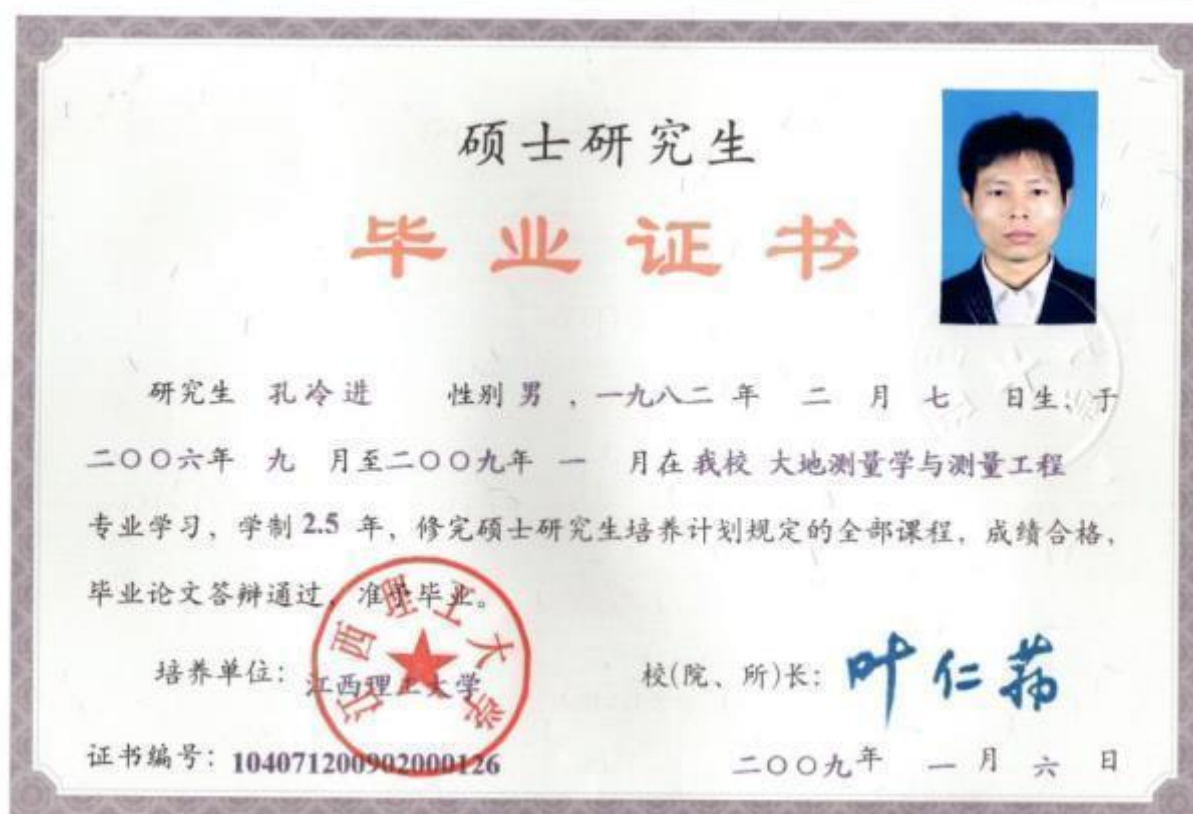 硕士研究生
毕业证书
研究生 孔冷进 性别 男 ，一九八二 年 二 月 七 日生、于
二〇〇六年 九 月至二〇〇九年 一 月在 我校 大地测量学与测量工程
专业学习，学制 2.5 年，修完硕士研究生培养计划规定的全部课程，成绩合格，
毕业论文答辩通过，准予毕业。
江西理工大学
培养单位：江西理工大学 校(院、所)长：叶仁荪
证书编号：104071200902000126 二〇〇九年 一 月 六 日